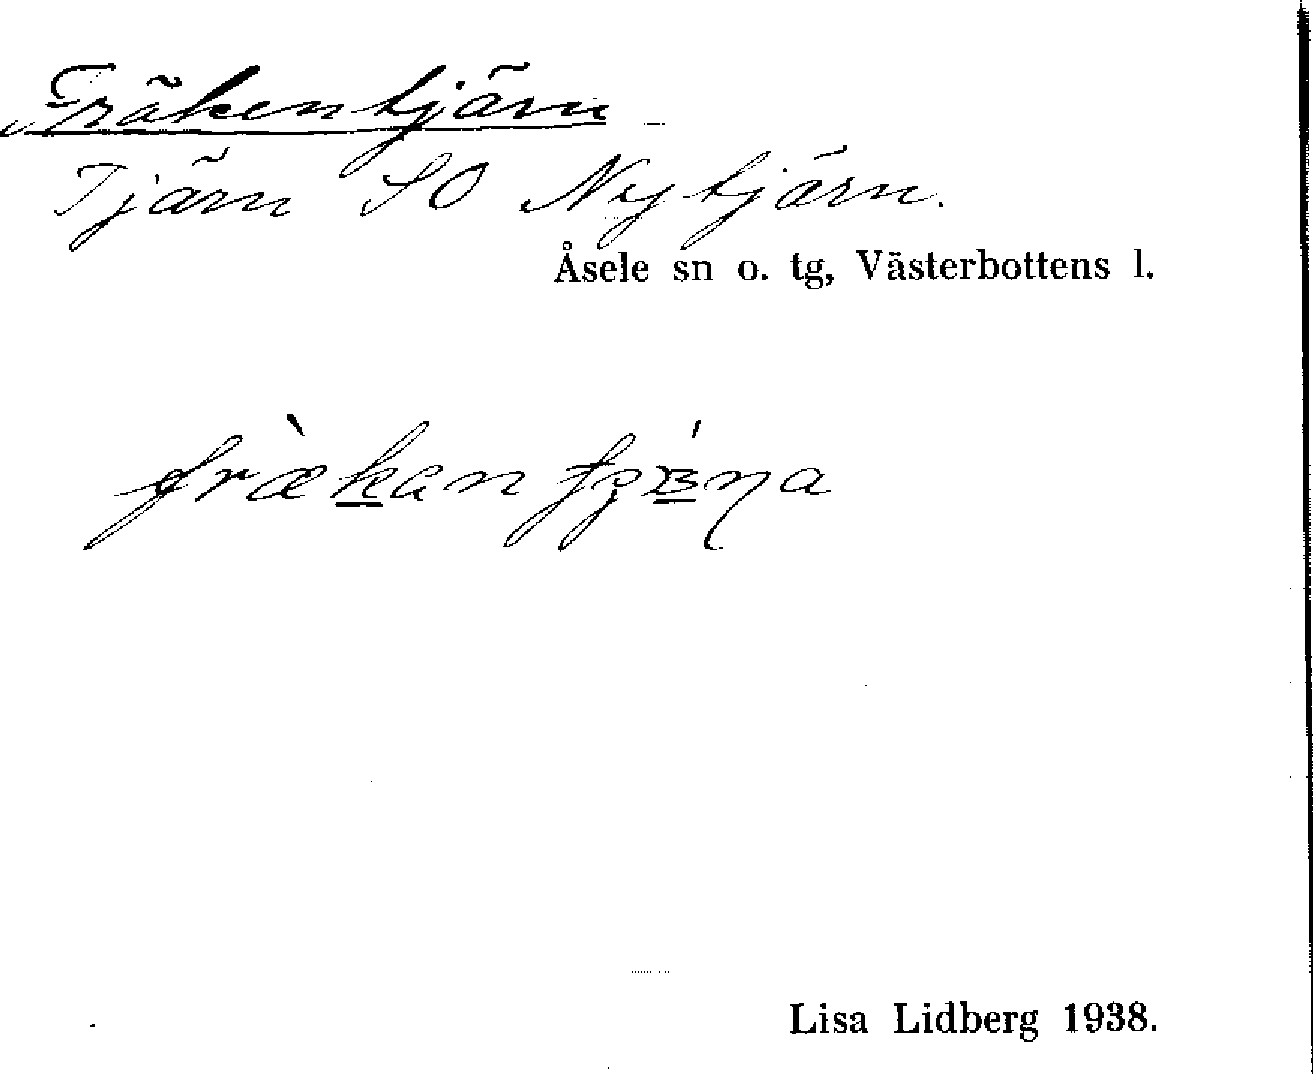 Fräkentjärn
Tjärn SO Nytjärn.
Åsele sn o. tg, Västerbottens l.
Lisa Lidberg 1938.